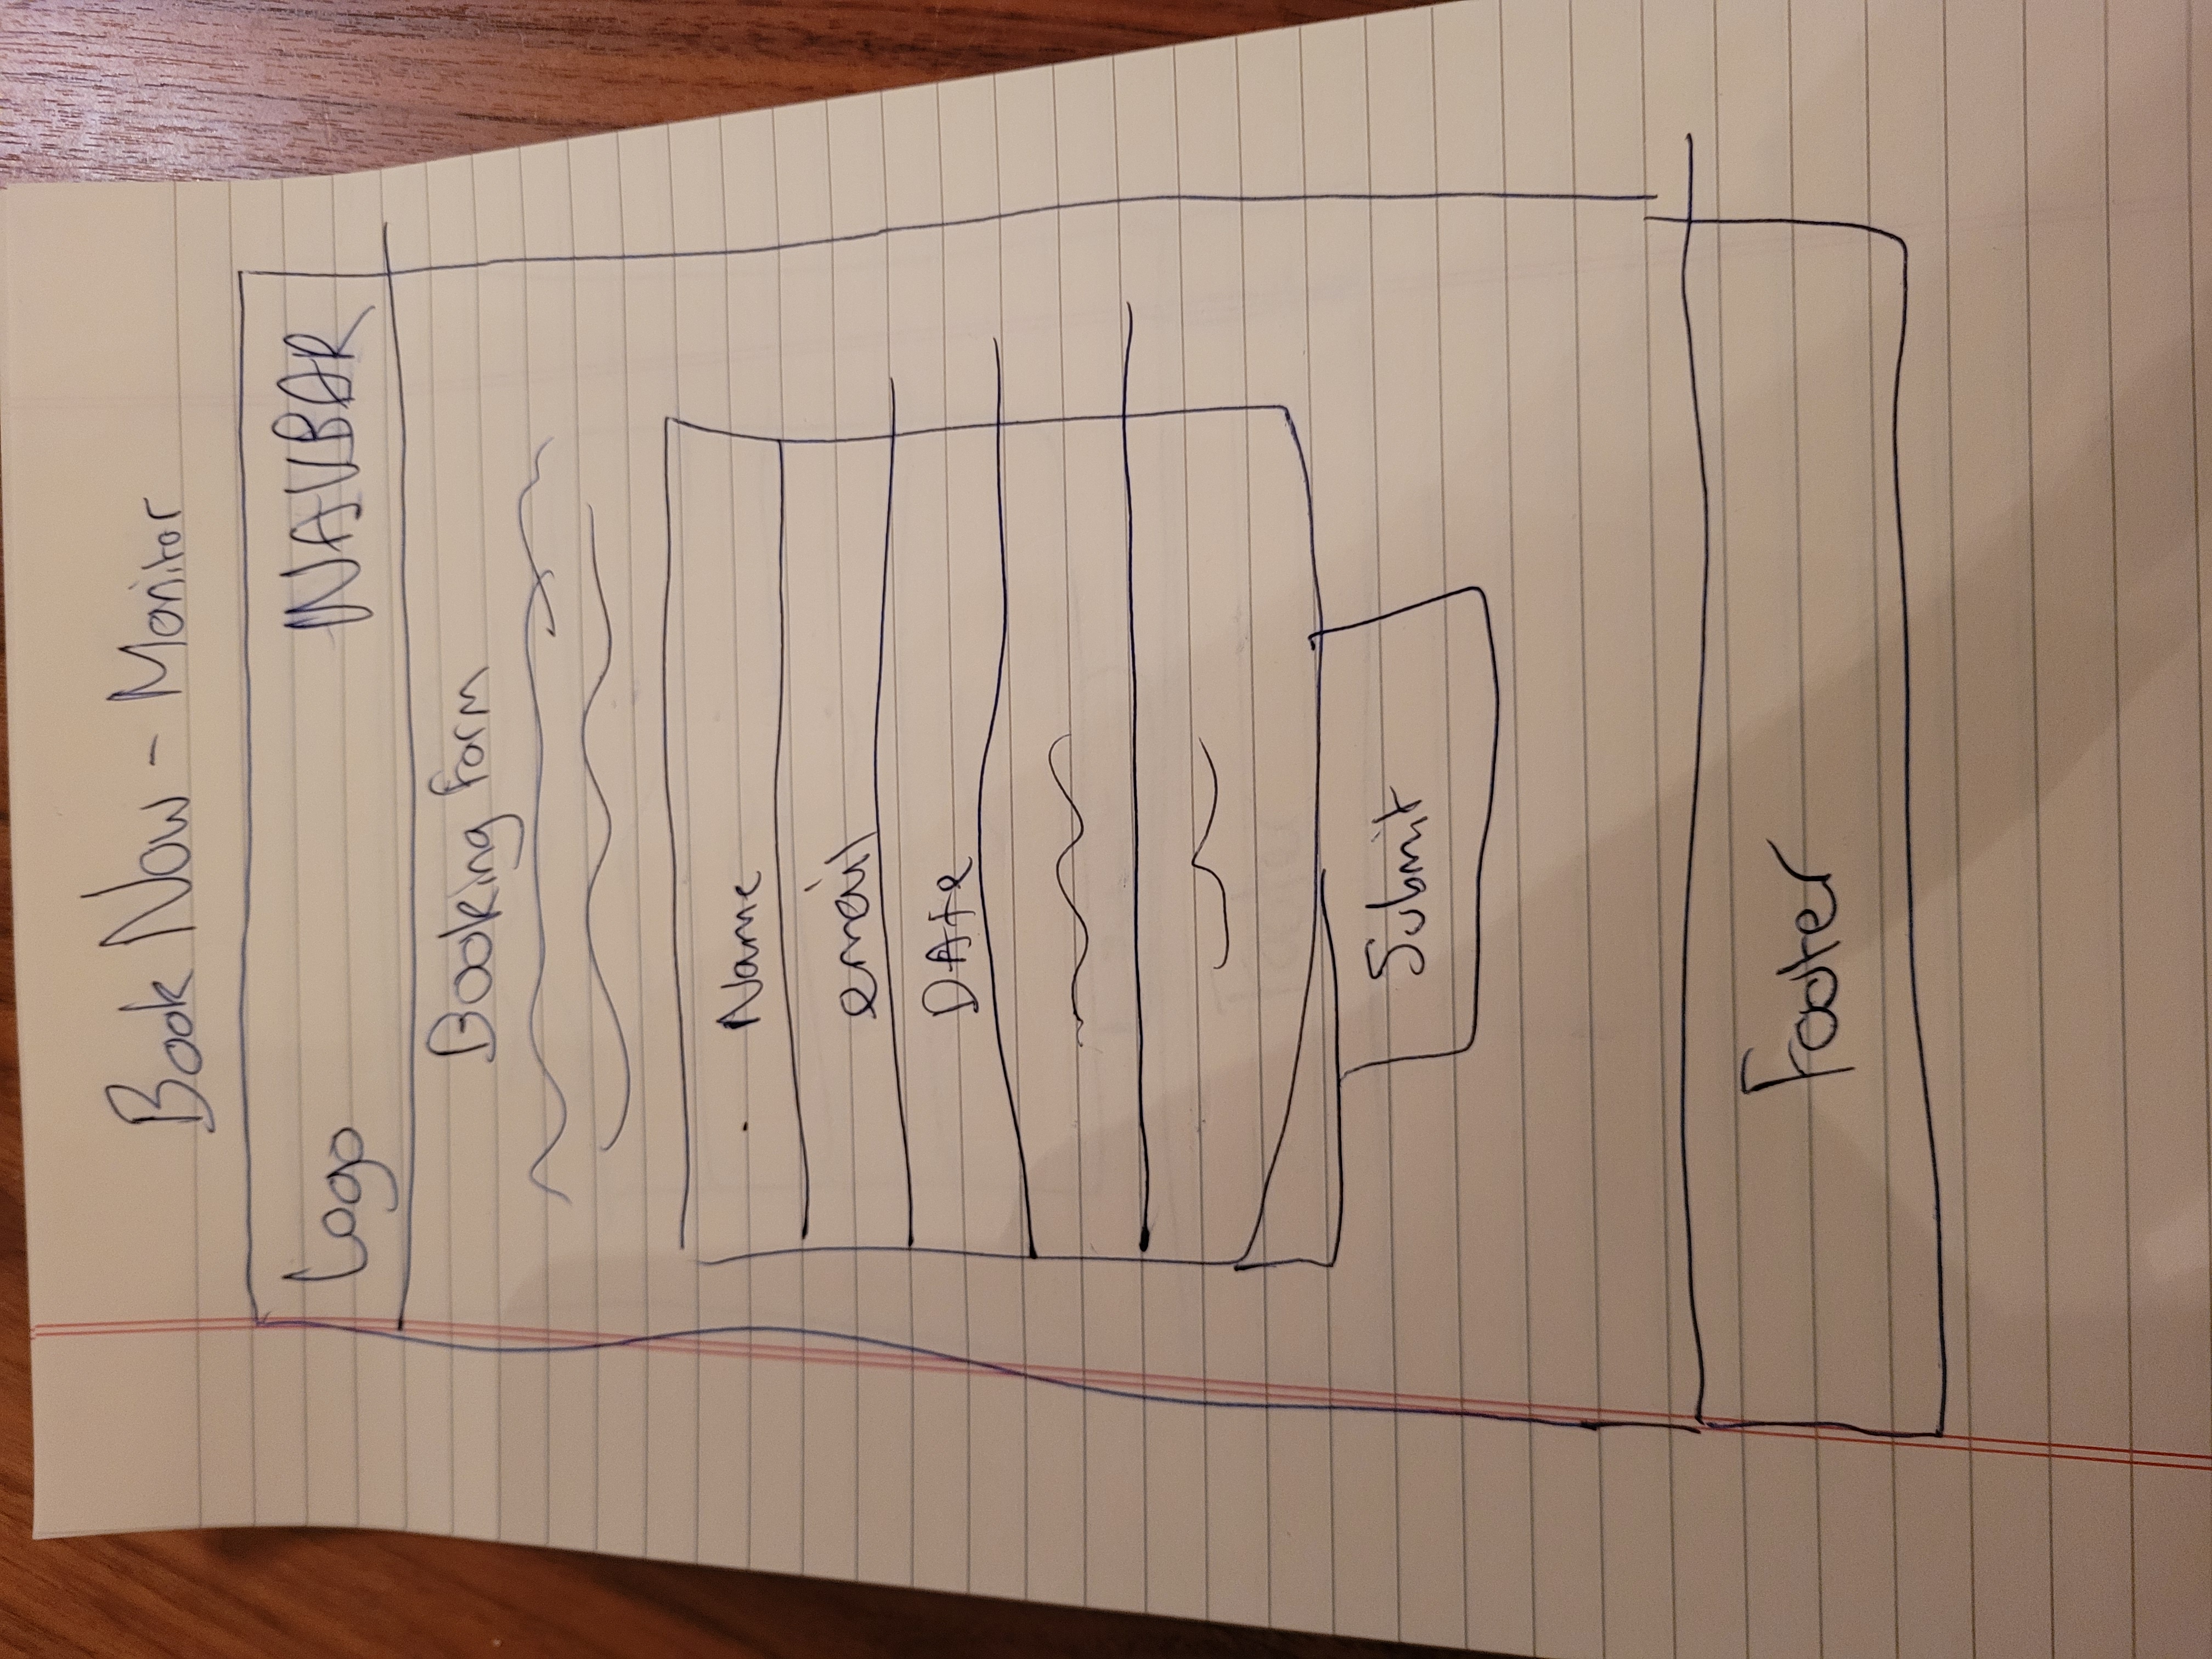 Book Now - Monitor
Logo NAVBAR
Booking Form
Name
email
DAte
Submit
Footer